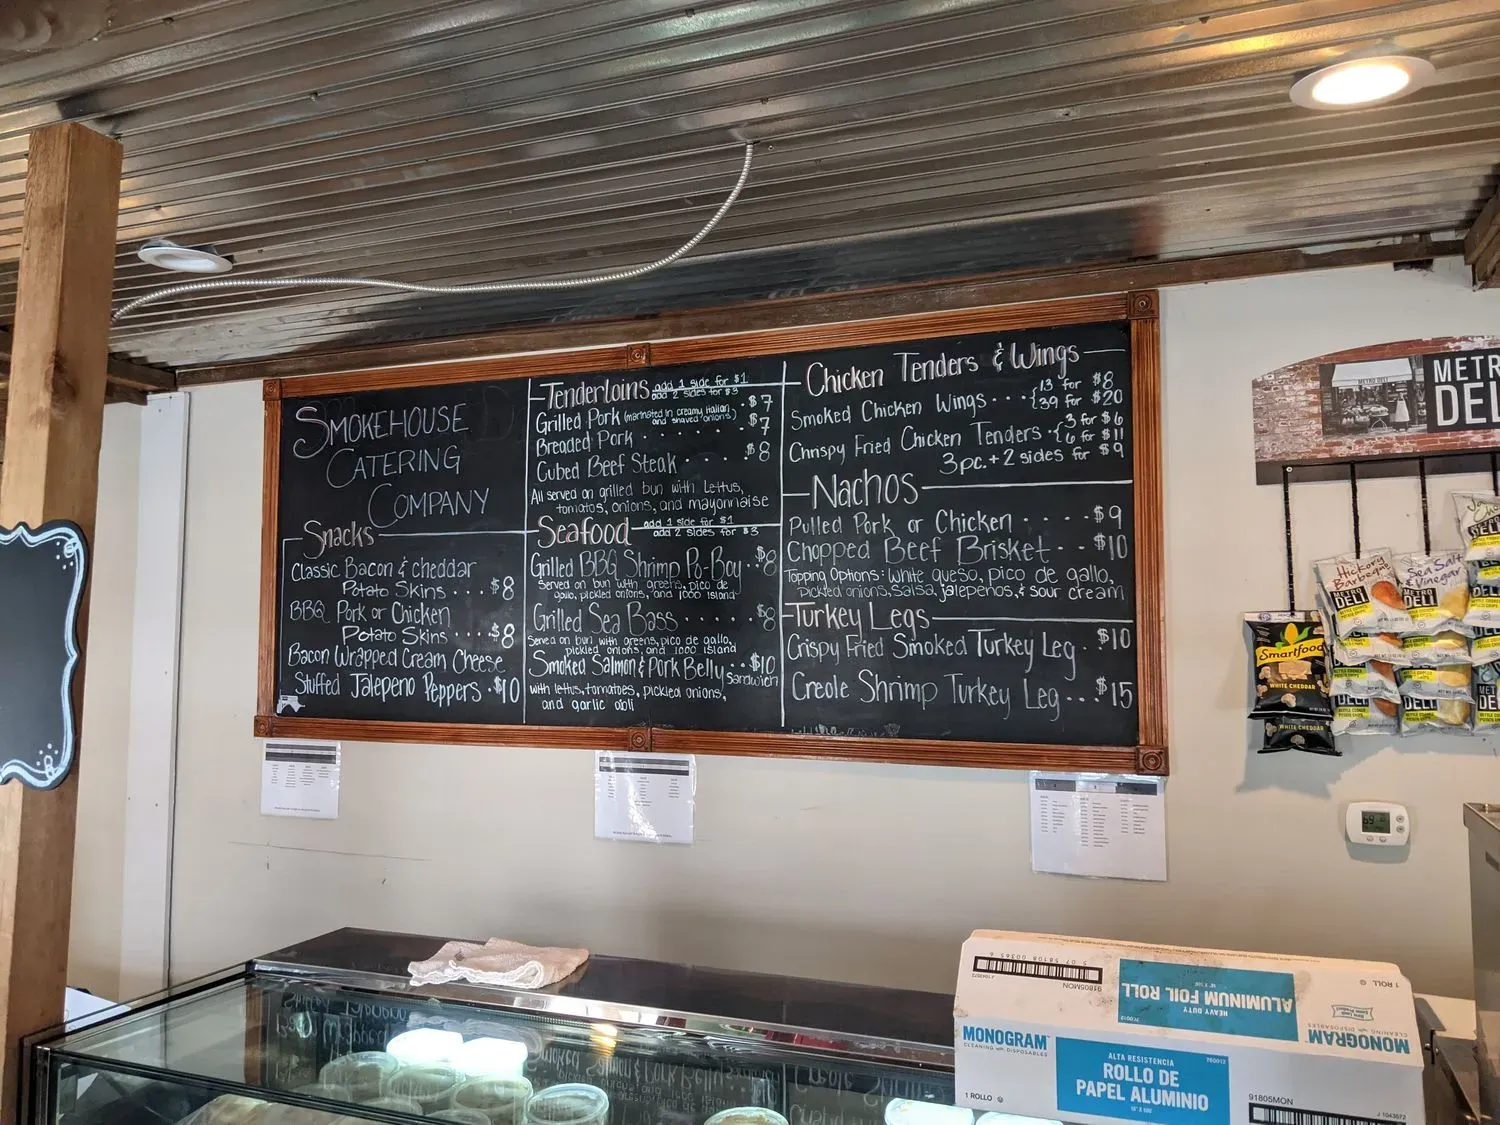 SMOKEHOUSE
CATERING
COMPANY
Snacks
Classic Bacon & cheddar
Potato Skins ... $8
BBQ Pork or Chicken
Potato Skins .... $8
Bacon Wrapped Cream Cheese
Stuffed Jalepeno Peppers . $10
Tenderloins add 1 side for $1
add 2 sides for $3
Grilled Pork (marinated in creamy italian, . $7
and shaved onions)
Breaded Pork . . . . . . $7
Cubed Beef Steak . . . . $8
All served on grilled bun with lettus,
tomatos, onions, and mayonnaise
Seafood add 1 side for $1
add 2 sides for $3
Grilled BBQ Shrimp Po-Boy .. $8
Served on bun with greens, pico de
gallo, pickled onions, and 1000 island
Grilled Sea Bass ...... $8
Served on bun with greens, pico de gallo,
pickled onions, and 1000 island
Smoked Salmon & Pork Belly .. $10
Sandwich
with lettus, tomatoes, pickled onions,
and garlic
Chicken Tenders & Wings
Smoked Chicken Wings ... {13 for $8
{39 for $20
Chrispy Fried Chicken Tenders . { 3 for $6
6 for $11
3 pc. + 2 sides for $9
Nachos
Pulled Pork or Chicken . . . . $9
Chopped Beef Brisket . . $10
Topping Options: White queso, pico de gallo,
Pickled onions, Salsa, jalepenos, & sour cream
Turkey Legs
Crispy Fried Smoked Turkey Leg .. $10
Creole Shrimp Turkey Leg ... $15
METRO
DEL
Hickory
Barbecue
METRO
DELI
Sea Salt
& Vinegar
METRO
DELI
Smartfood
WHITE CHEDDAR
WHITE CHEDDAR
69
ALUMINUM FOIL ROLL
HEAVY DUTY
18" X 500'
1 ROLL
J 1043572
91805MON
MONOGRAM
CLEANING AND DISPOSABLES
MONOGRAM
CLEANING AND DISPOSABLES
ALTA RESISTENCIA
760012
ROLLO DE
PAPEL ALUMINIO
18" X 500'
1 ROLLO
91805MON
J 1043572